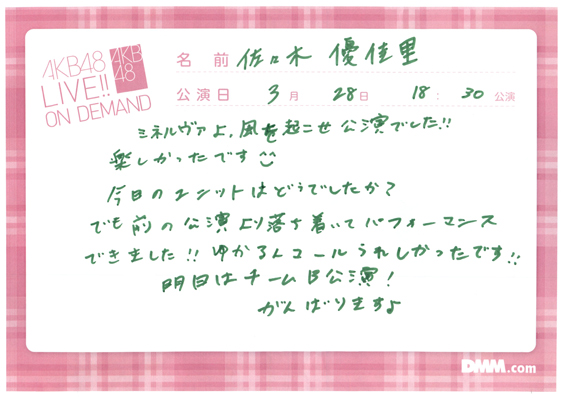 AKB48
LIVE!!
ON DEMAND
AKB
48
名前 佐々木 優佳里
公演日 3月 28日 18:30公演
ミネルヴァよ、風を起こせ公演でした!!
楽しかったです
今日のユニットはどうでしたか?
でも前の公演より落ち着いてパフォーマンス
できました!! ゆかるんコールうれしかったです!!
明日はチームB公演!
がんばりますよ
DMM.com